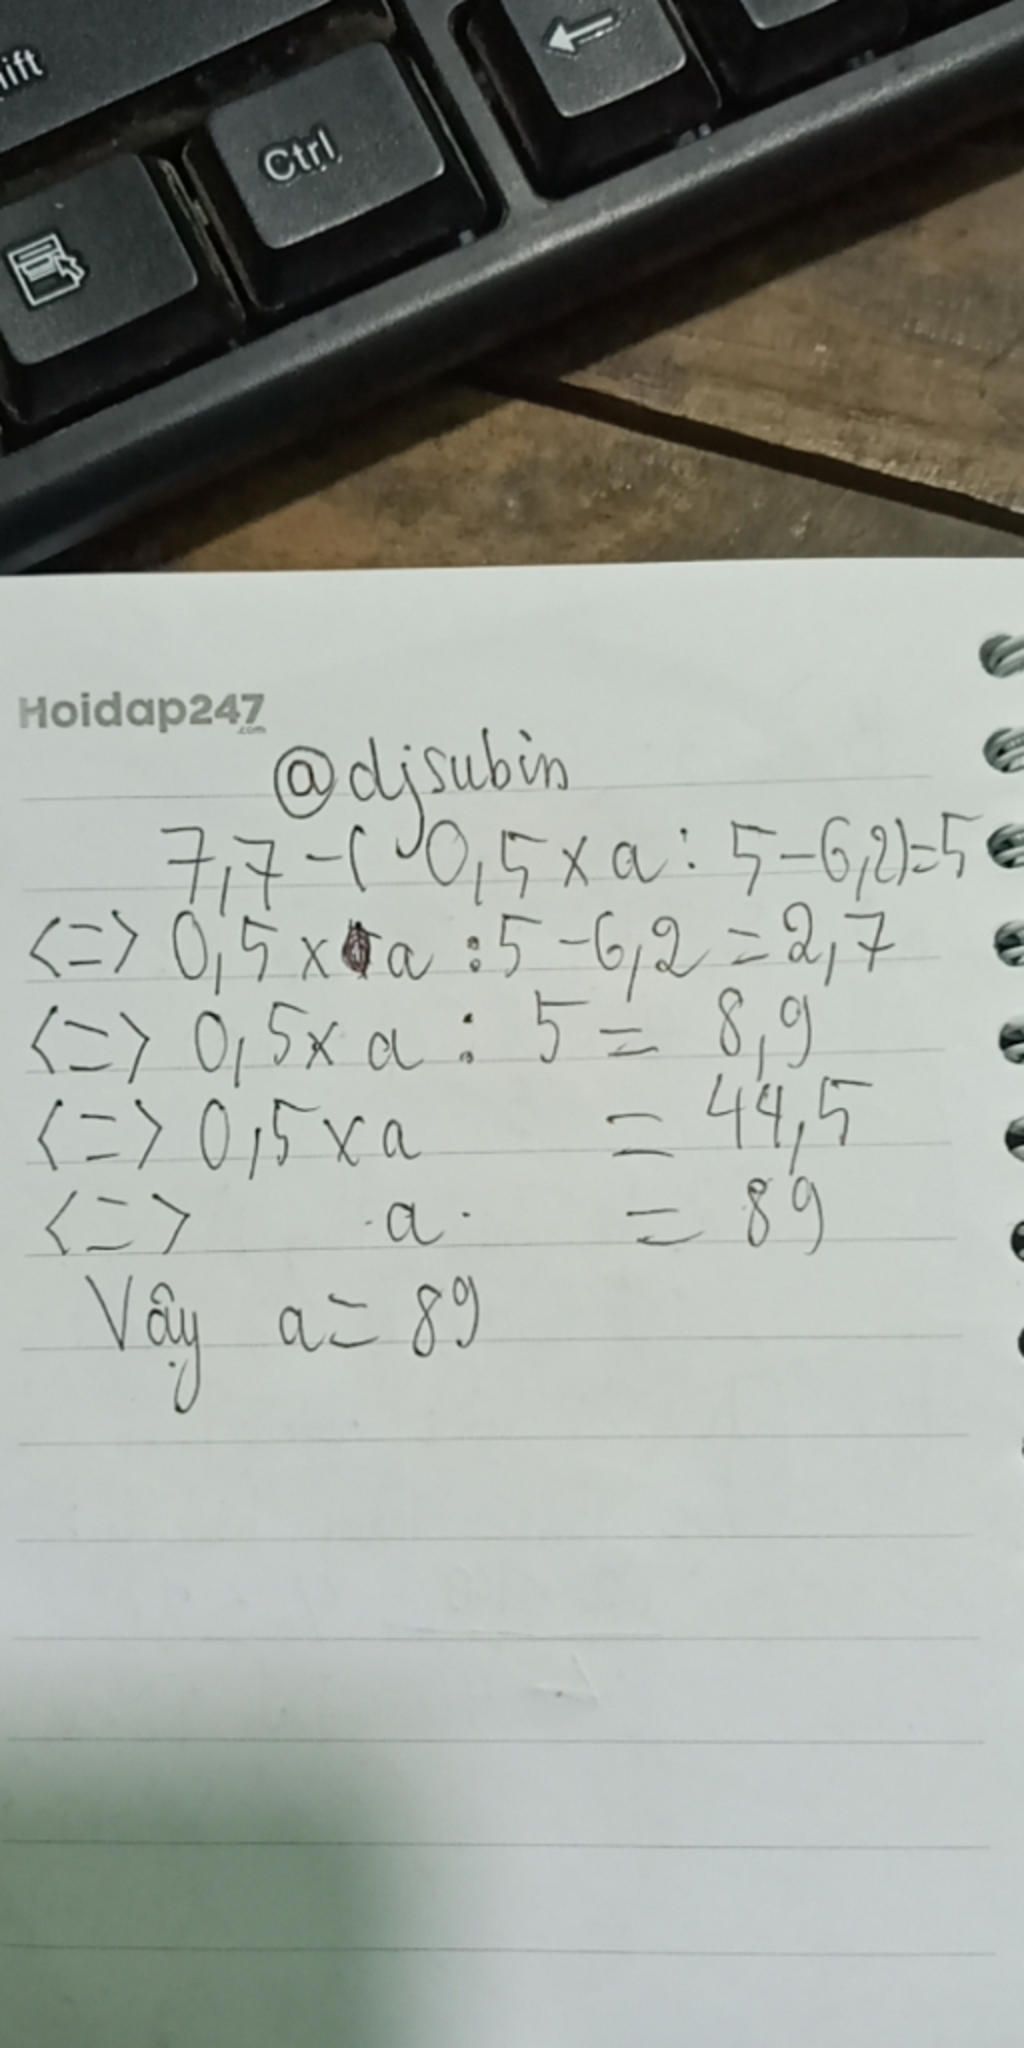 ift
Ctrl
Hoidap247
.com
@djsubin
7,7-( 0,5×a: 5-6,2)=5
<=> 0,5×a :5-6,2=2,7
<=> 0,5×a : 5= 8,9
<=> 0,5×a = 44,5
<=> a = 89
Vậy a= 89